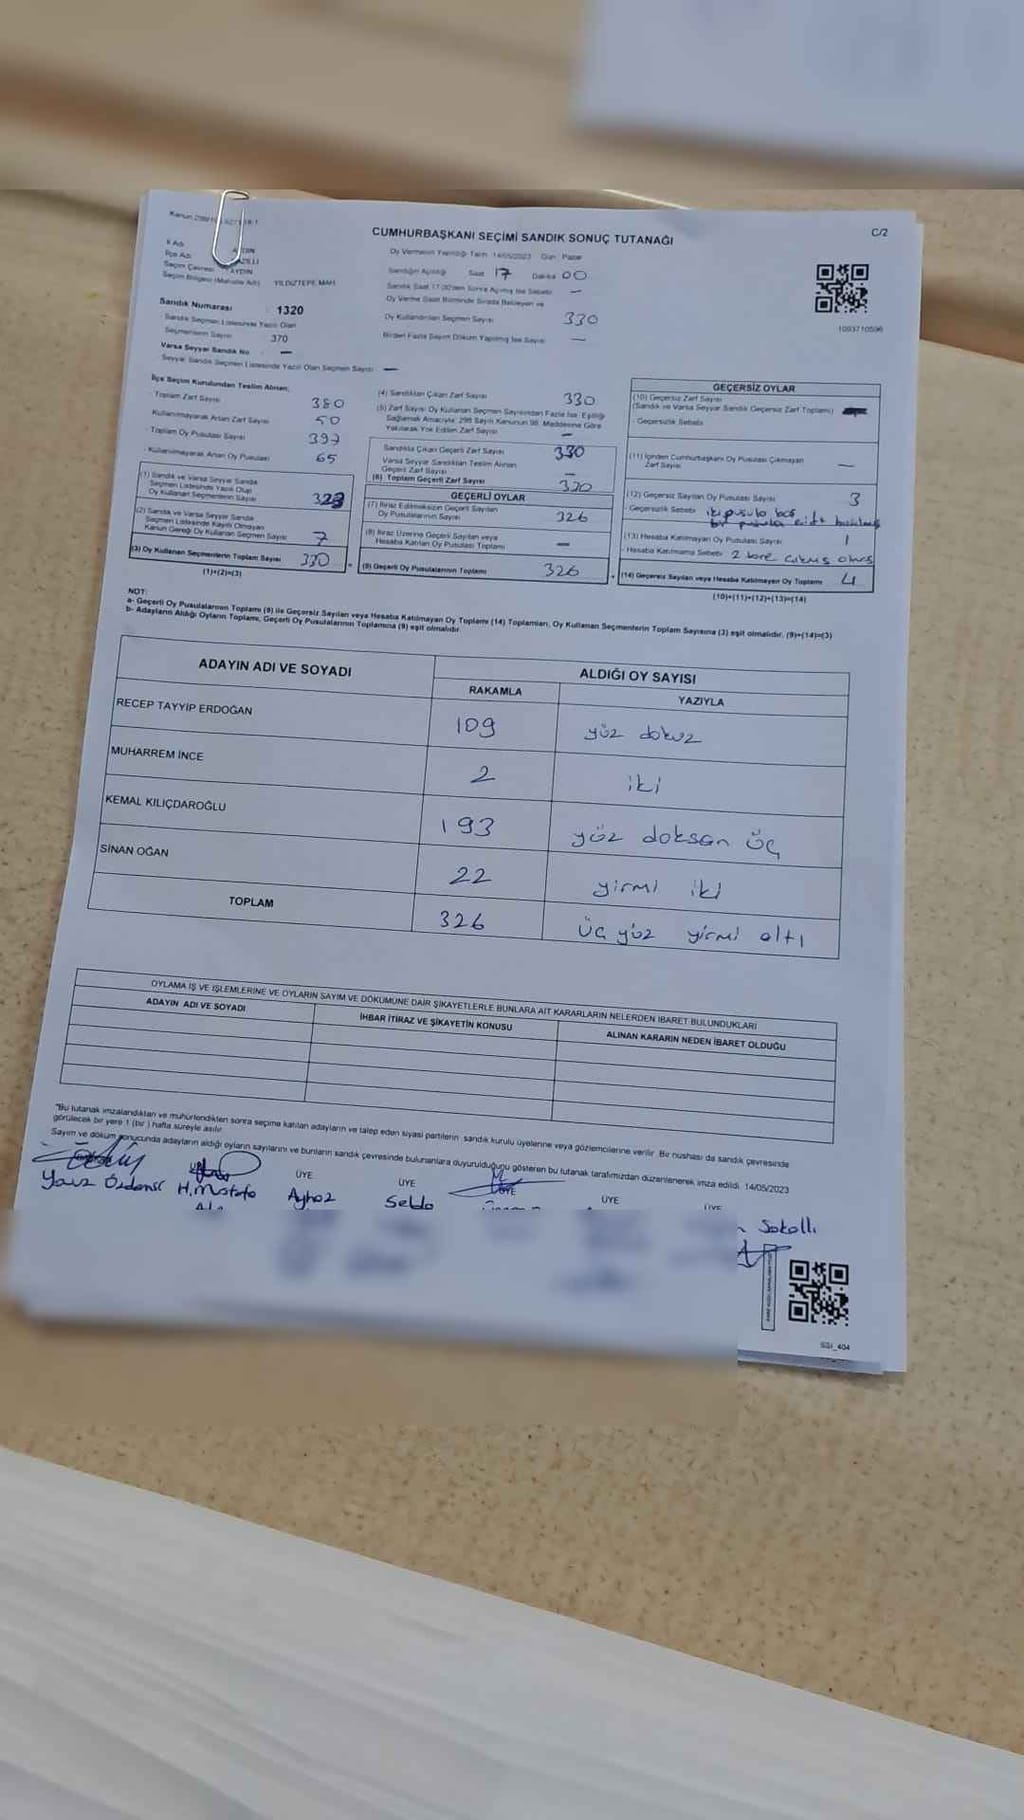 CUMHURBAŞKANI SEÇİMİ SANDIK SONUÇ TUTANAĞI
C/2
Oy Vermenin Yapıldığı Tarih 14/05/2023 Gün Pazar
İl Adı
İlçe Adı
Seçim Çevresi AYDIN
Seçim Bölgesi (Mahalle Adı) YILDIZTEPE MAH.
Sandığın Açıldığı Saat 17 Dakika 00
Sandık Saat 17.00'den Sonra Açılmış İse Sebebi —
Oy Verme Saati Bitiminde Sırada Bekleyen ve
Oy Kullandırılan Seçmen Sayısı 330
Birden Fazla Sayım Döküm Yapılmış İse Sayısı —
1093710596
Sandık Numarası : 1320
Sandık Seçmen Listesinde Yazılı Olan
Seçmenlerin Sayısı 370
Varsa Seyyar Sandık No —
Seyyar Sandık Seçmen Listesinde Yazılı Olan Seçmen Sayısı —
İlçe Seçim Kurulundan Teslim Alınan;
Toplam Zarf Sayısı 380
Kullanılmayarak Artan Zarf Sayısı 50
Toplam Oy Pusulası Sayısı 397
Kullanılmayarak Artan Oy Pusulası 65
(1) Sandık ve Varsa Seyyar Sandık
Seçmen Listesinde Yazılı Olup
Oy Kullanan Seçmenlerin Sayısı 323
(2) Sandık ve Varsa Seyyar Sandık
Seçmen Listesinde Kayıtlı Olmayan
Kanun Gereği Oy Kullanan Seçmen Sayısı 7
(3) Oy Kullanan Seçmenlerin Toplam Sayısı 330
(1)+(2)=(3)
(4) Sandıktan Çıkan Zarf Sayısı 330
(5) Zarf Sayısı Oy Kullanan Seçmen Sayısından Fazla İse, Eşitliği
Sağlamak Amacıyla; 298 Sayılı Kanunun 98. Maddesine Göre
Yakılarak Yok Edilen Zarf Sayısı —
Sandıkta Çıkan Geçerli Zarf Sayısı 330
Varsa Seyyar Sandıktan Teslim Alınan
Geçerli Zarf Sayısı —
(6) Toplam Geçerli Zarf Sayısı 330
GEÇERLİ OYLAR
(7) İtiraz Edilmeksizin Geçerli Sayılan
Oy Pusulalarının Sayısı 326
(8) İtiraz Üzerine Geçerli Sayılan veya
Hesaba Katılan Oy Pusulası Toplamı —
(9) Geçerli Oy Pusulalarının Toplamı 326
GEÇERSİZ OYLAR
(10) Geçersiz Zarf Sayısı
(Sandık ve Varsa Seyyar Sandık Geçersiz Zarf Toplamı)
- Geçersizlik Sebebi
(11) İçinden Cumhurbaşkanı Oy Pusulası Çıkmayan
Zarf Sayısı —
(12) Geçersiz Sayılan Oy Pusulası Sayısı 3
- Geçersizlik Sebebi iki pusula boş
bir pusula
(13) Hesaba Katılmayan Oy Pusulası Sayısı 1
- Hesaba Katılmama Sebebi 2 kere çıkmış olması
(14) Geçersiz Sayılan veya Hesaba Katılmayan Oy Toplamı 4
(10)+(11)+(12)+(13)=(14)
NOT:
a- Geçerli Oy Pusulalarının Toplamı (9) ile Geçersiz Sayılan veya Hesaba Katılmayan Oy Toplamı (14) Toplamları, Oy Kullanan Seçmenlerin Toplam Sayısına (3) eşit olmalıdır. (9)+(14)=(3)
b- Adayların Aldığı Oyların Toplamı, Geçerli Oy Pusulalarının Toplamına (9) eşit olmalıdır.
ADAYIN ADI VE SOYADI
ALDIĞI OY SAYISI
RAKAMLA
YAZIYLA
RECEP TAYYIP ERDOĞAN 109 yüz dokuz
MUHARREM İNCE 2 iki
KEMAL KILIÇDAROĞLU 193 yüz doksan üç
SİNAN OĞAN 22 yirmi iki
TOPLAM 326 üç yüz yirmi altı
OYLAMA İŞ VE İŞLEMLERİNE VE OYLARIN SAYIM VE DÖKÜMÜNE DAİR ŞİKAYETLERLE BUNLARA AİT KARARLARIN NELERDEN İBARET BULUNDUKLARI
ADAYIN ADI VE SOYADI
İHBAR İTİRAZ VE ŞİKAYETİN KONUSU
ALINAN KARARIN NEDEN İBARET OLDUĞU
"Bu tutanak imzalandıktan ve mühürlendikten sonra seçime katılan adayların ve talep eden siyasi partilerin sandık kurulu üyelerine veya gözlemcilerine verilir. Bir nüshası da sandık çevresinde
görülecek bir yere 1 (bir ) hafta süreyle asılır.
Sayım ve döküm sonucunda adayların aldığı oyların sayılarını ve bunların sandık çevresinde bulunanlara duyurulduğunu gösteren bu tutanak tarafımızdan düzenlenerek imza edildi. 14/05/2023
ÜYE
ÜYE
ÜYE
ÜYE
ÜYE
H. Mustafa
Selda
Sokollu
SSI_404